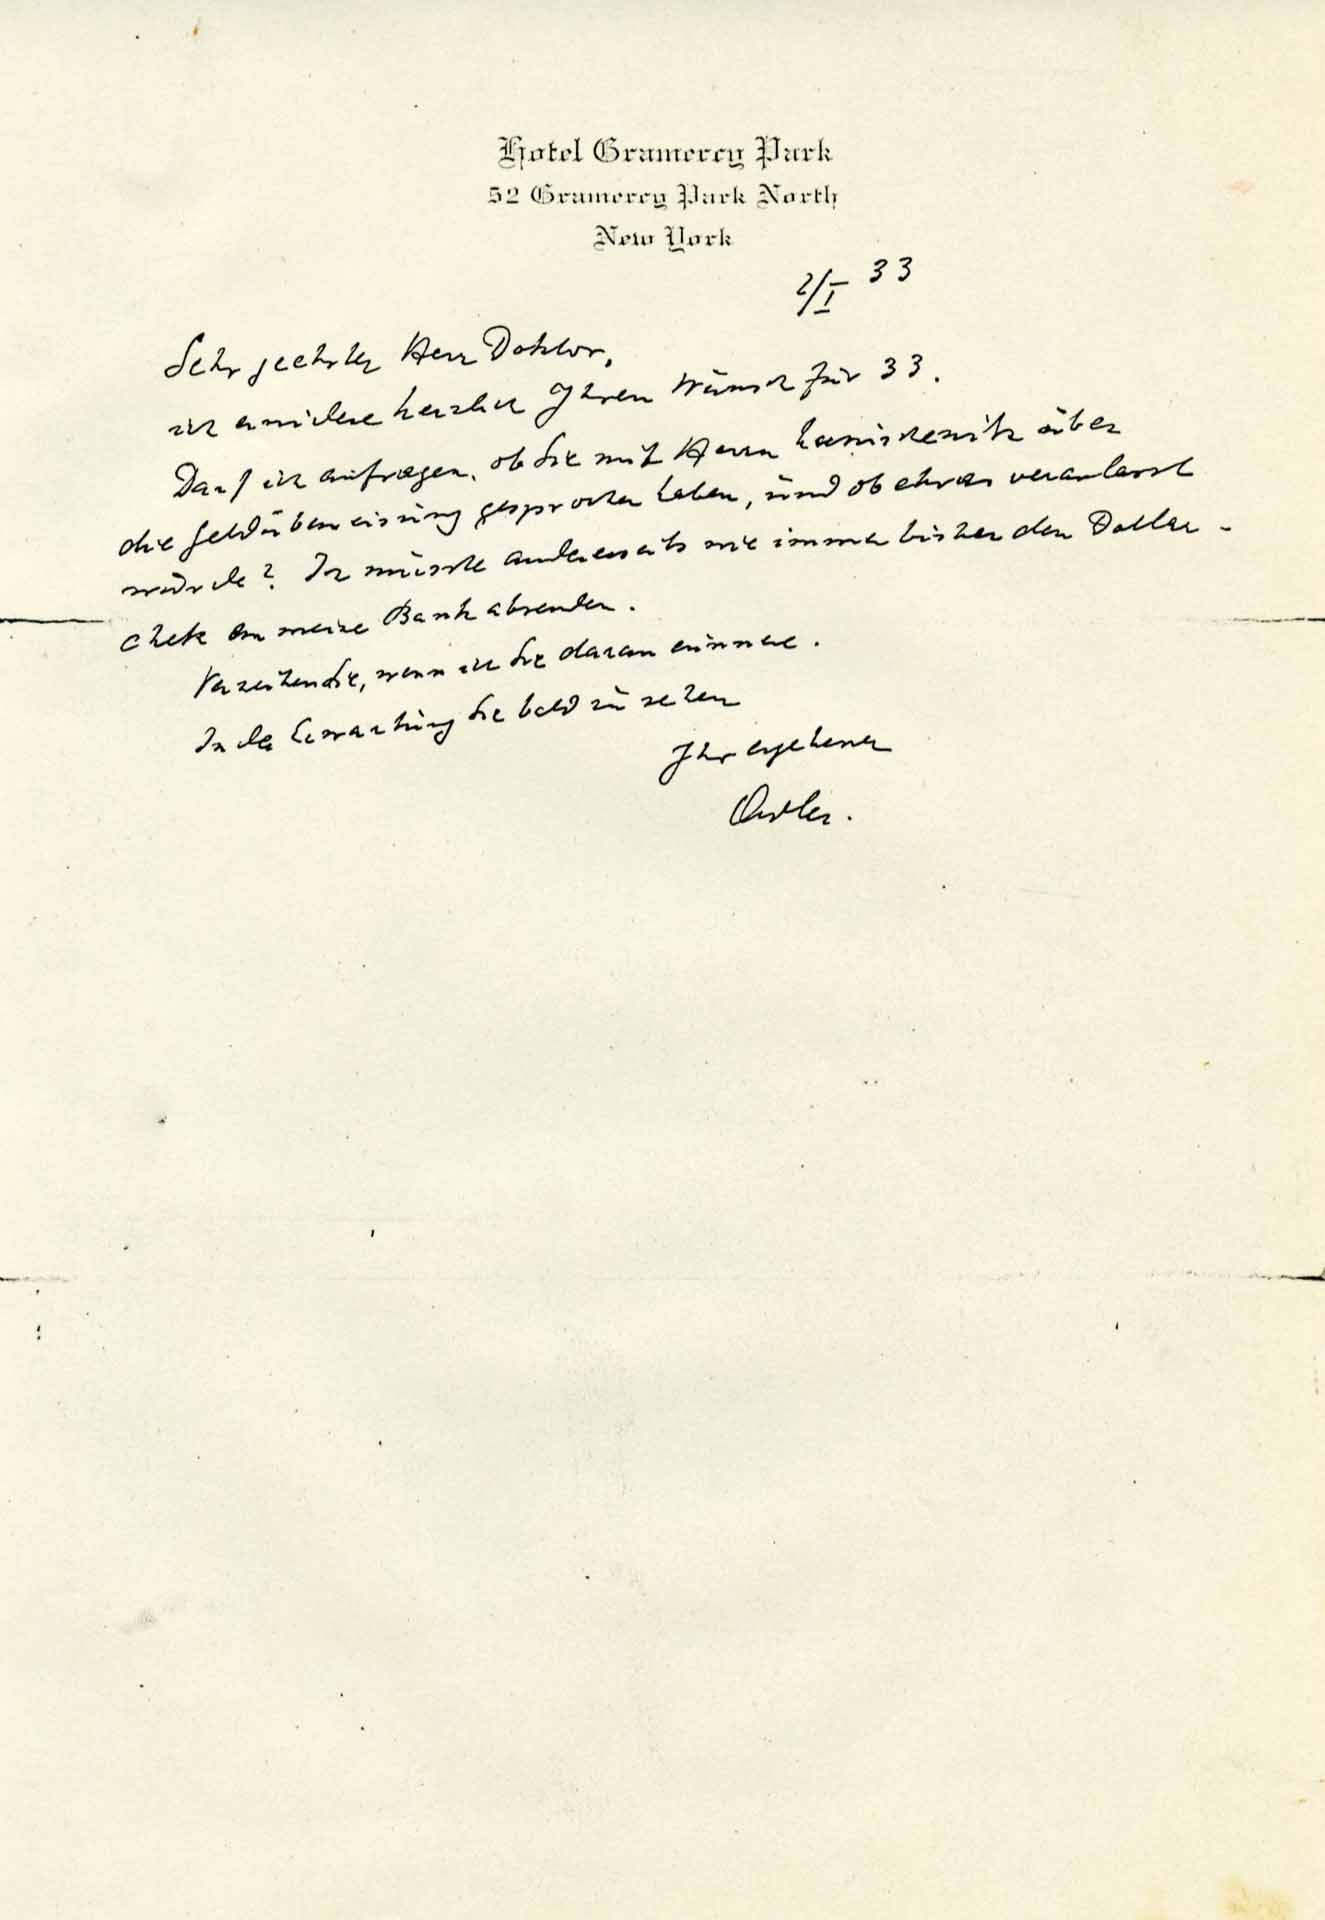 Hotel Gramercy Park
52 Gramercy Park North
New York
2/I 33
Sehr geehrter Herr Doktor,
ich erwidere herzlich Ihren Wunsch für 33.
Darf ich anfragen, ob Sie mit Herrn über
die Geldüberweisung gesprochen haben, und ob etwas veranlasst
wurde? Ich müsste anderenseits wie immer bisher den Dollar-
chek an meine Bank absenden.
Verzeihen Sie, wenn ich Sie daran erinnere.
In der Erwartung Sie bald zu sehen
Ihr ergebener
Adler.